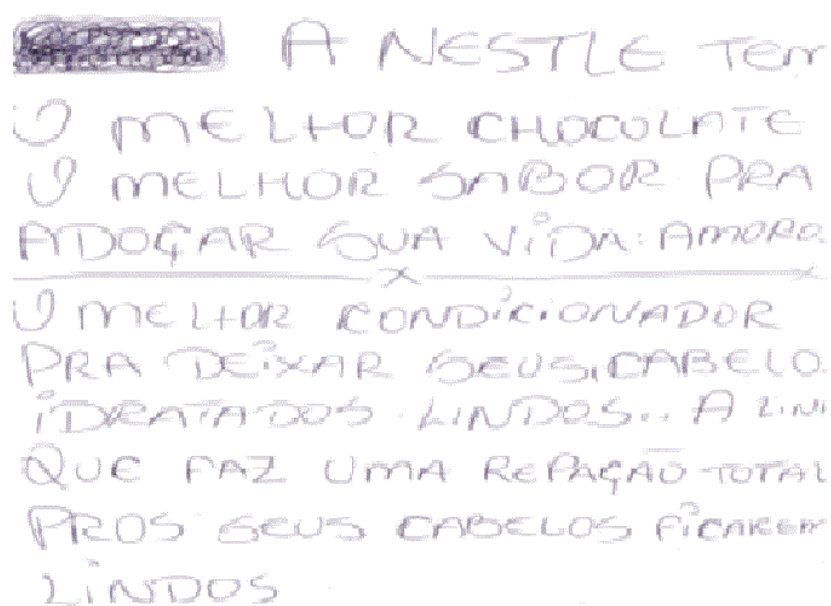 A NESTLE Tem
O MELHOR CHOCOLATE
O MELHOR SABOR PRA
ADOÇAR SUA ViDA: AMORO
O MELHOR CONDiCiONADOR
PRA DEiXAR SEUS, CABELO
iDRATADOS. LiNDOS.. A LiN
QUE FAZ UMA REPAÇÃO TOTAL
PROS SEUS CABELOS FiCAREM
LiNDOS